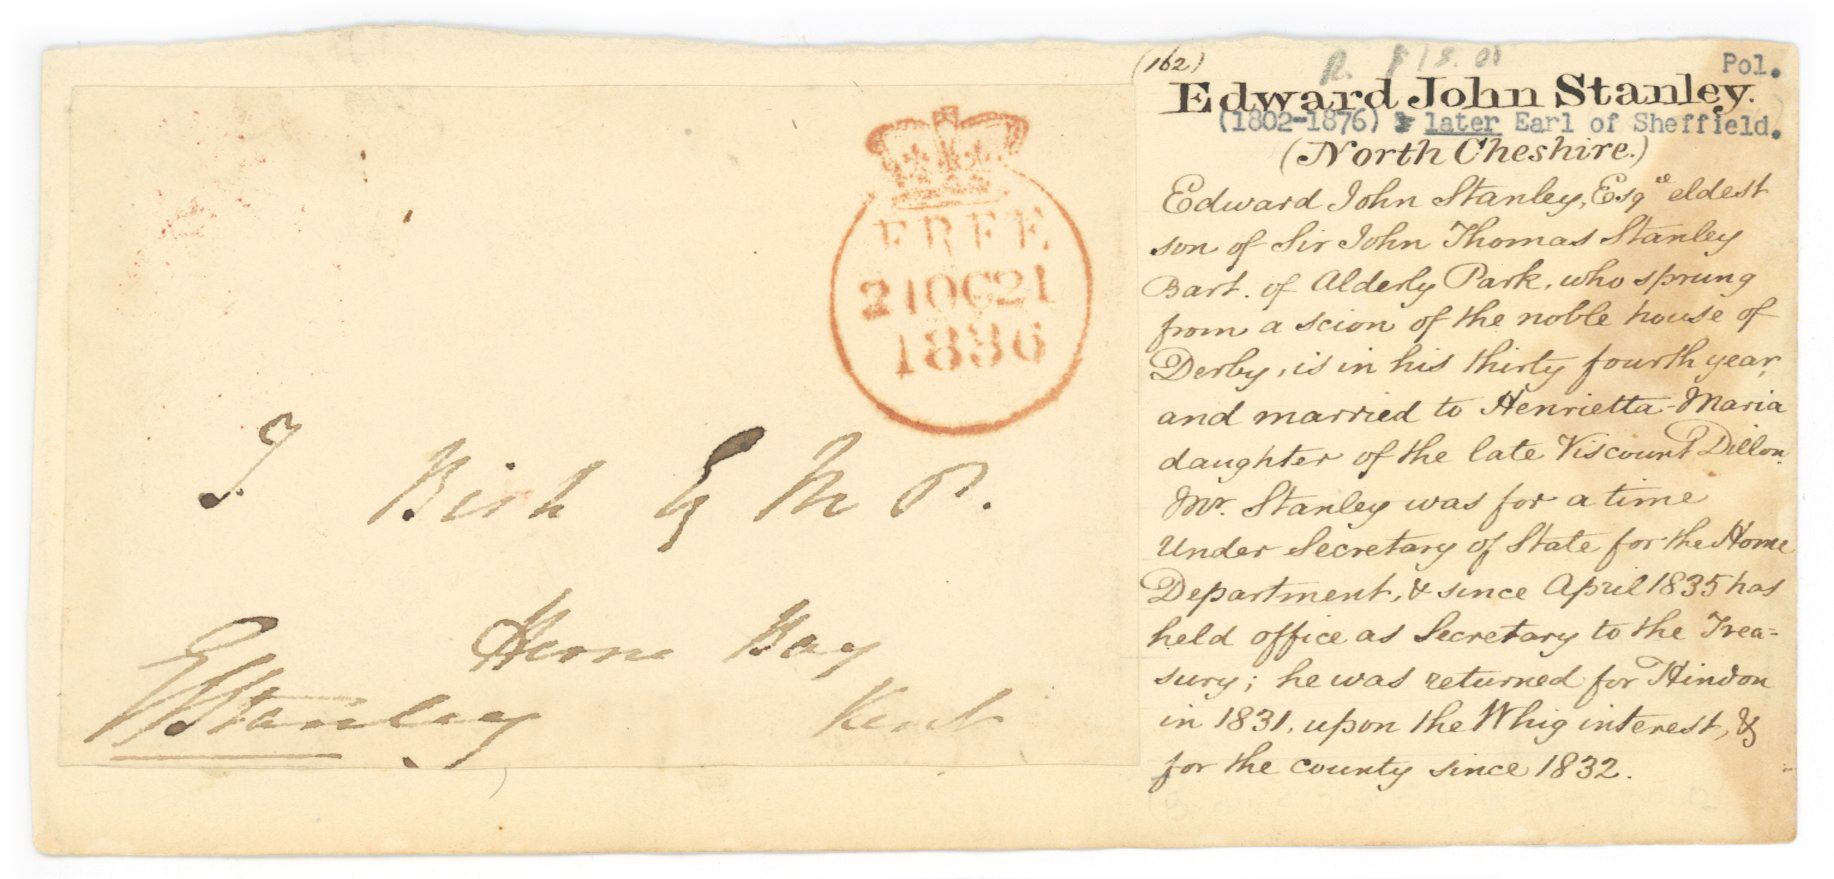 FREE
21OC21
1836
T Bish Esq M P.
Herne Bay
Kent
EJStanley
(162)
Pol.
Edward John Stanley.
(1802-1876) later Earl of Sheffield.
(North Cheshire.)
Edward John Stanley, Esqe eldest
son of Sir John Thomas Stanley
Bart. of Alderly Park, who sprung
from a scion of the noble house of
Derby, is in his thirty fourth year,
and married to Henrietta-Maria
daughter of the late Viscount Dillon.
Mr. Stanley was for a time
Under Secretary of State for the Home
Department, & since April 1835 has
held office as Secretary to the Trea=
sury; he was returned for Hindon
in 1831, upon the Whig interest, &
for the county since 1832.